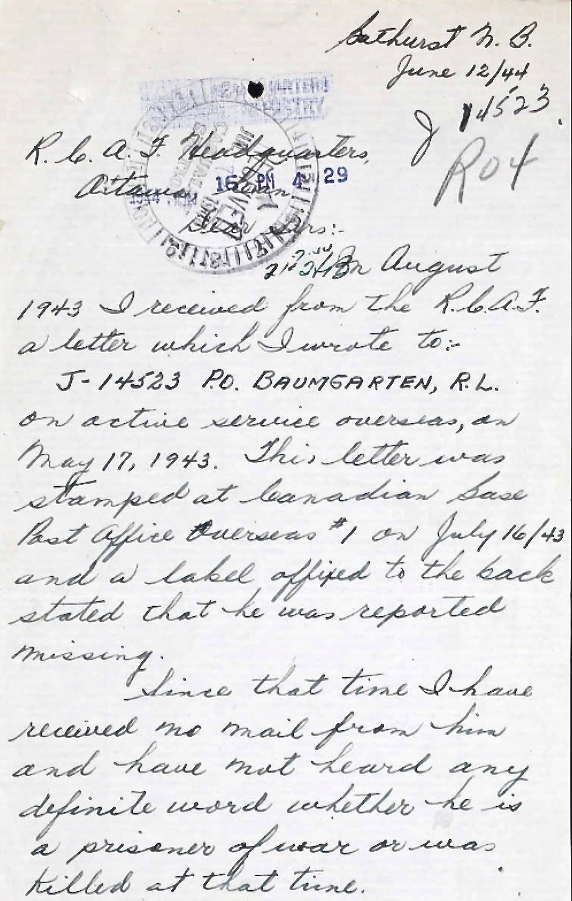 Bathurst N. B.
June 12/44
J 14523.
R04
R.C.A.F. Headquarters,
Ottawa,
16 PM 4 29
1944 JUN
Dear Sirs:-
In August
1943 I received from the R.C.A.F.
a letter which I wrote to:-
J-14523 P.O. BAUMGARTEN, R.L.
on active service overseas, on
May 17, 1943. This letter was
stamped at Canadian Base
Post Office Overseas #1 on July 16/43
and a label affixed to the back
stated that he was reported
missing.
Since that time I have
received no mail from him
and have not heard any
definite word whether he is
a prisoner of war or was
killed at that time.